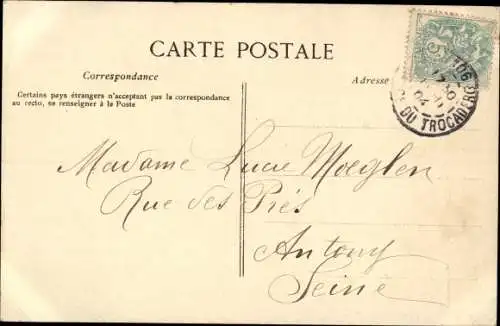 CARTE POSTALE
Correspondance
Adresse
Certains pays étrangers n'acceptant pas la correspondance
au recto, se renseigner à la Poste
Madame Lucie Moeglen
Rue des Prés
Antony
Seine
5
DU TROCADERO
04